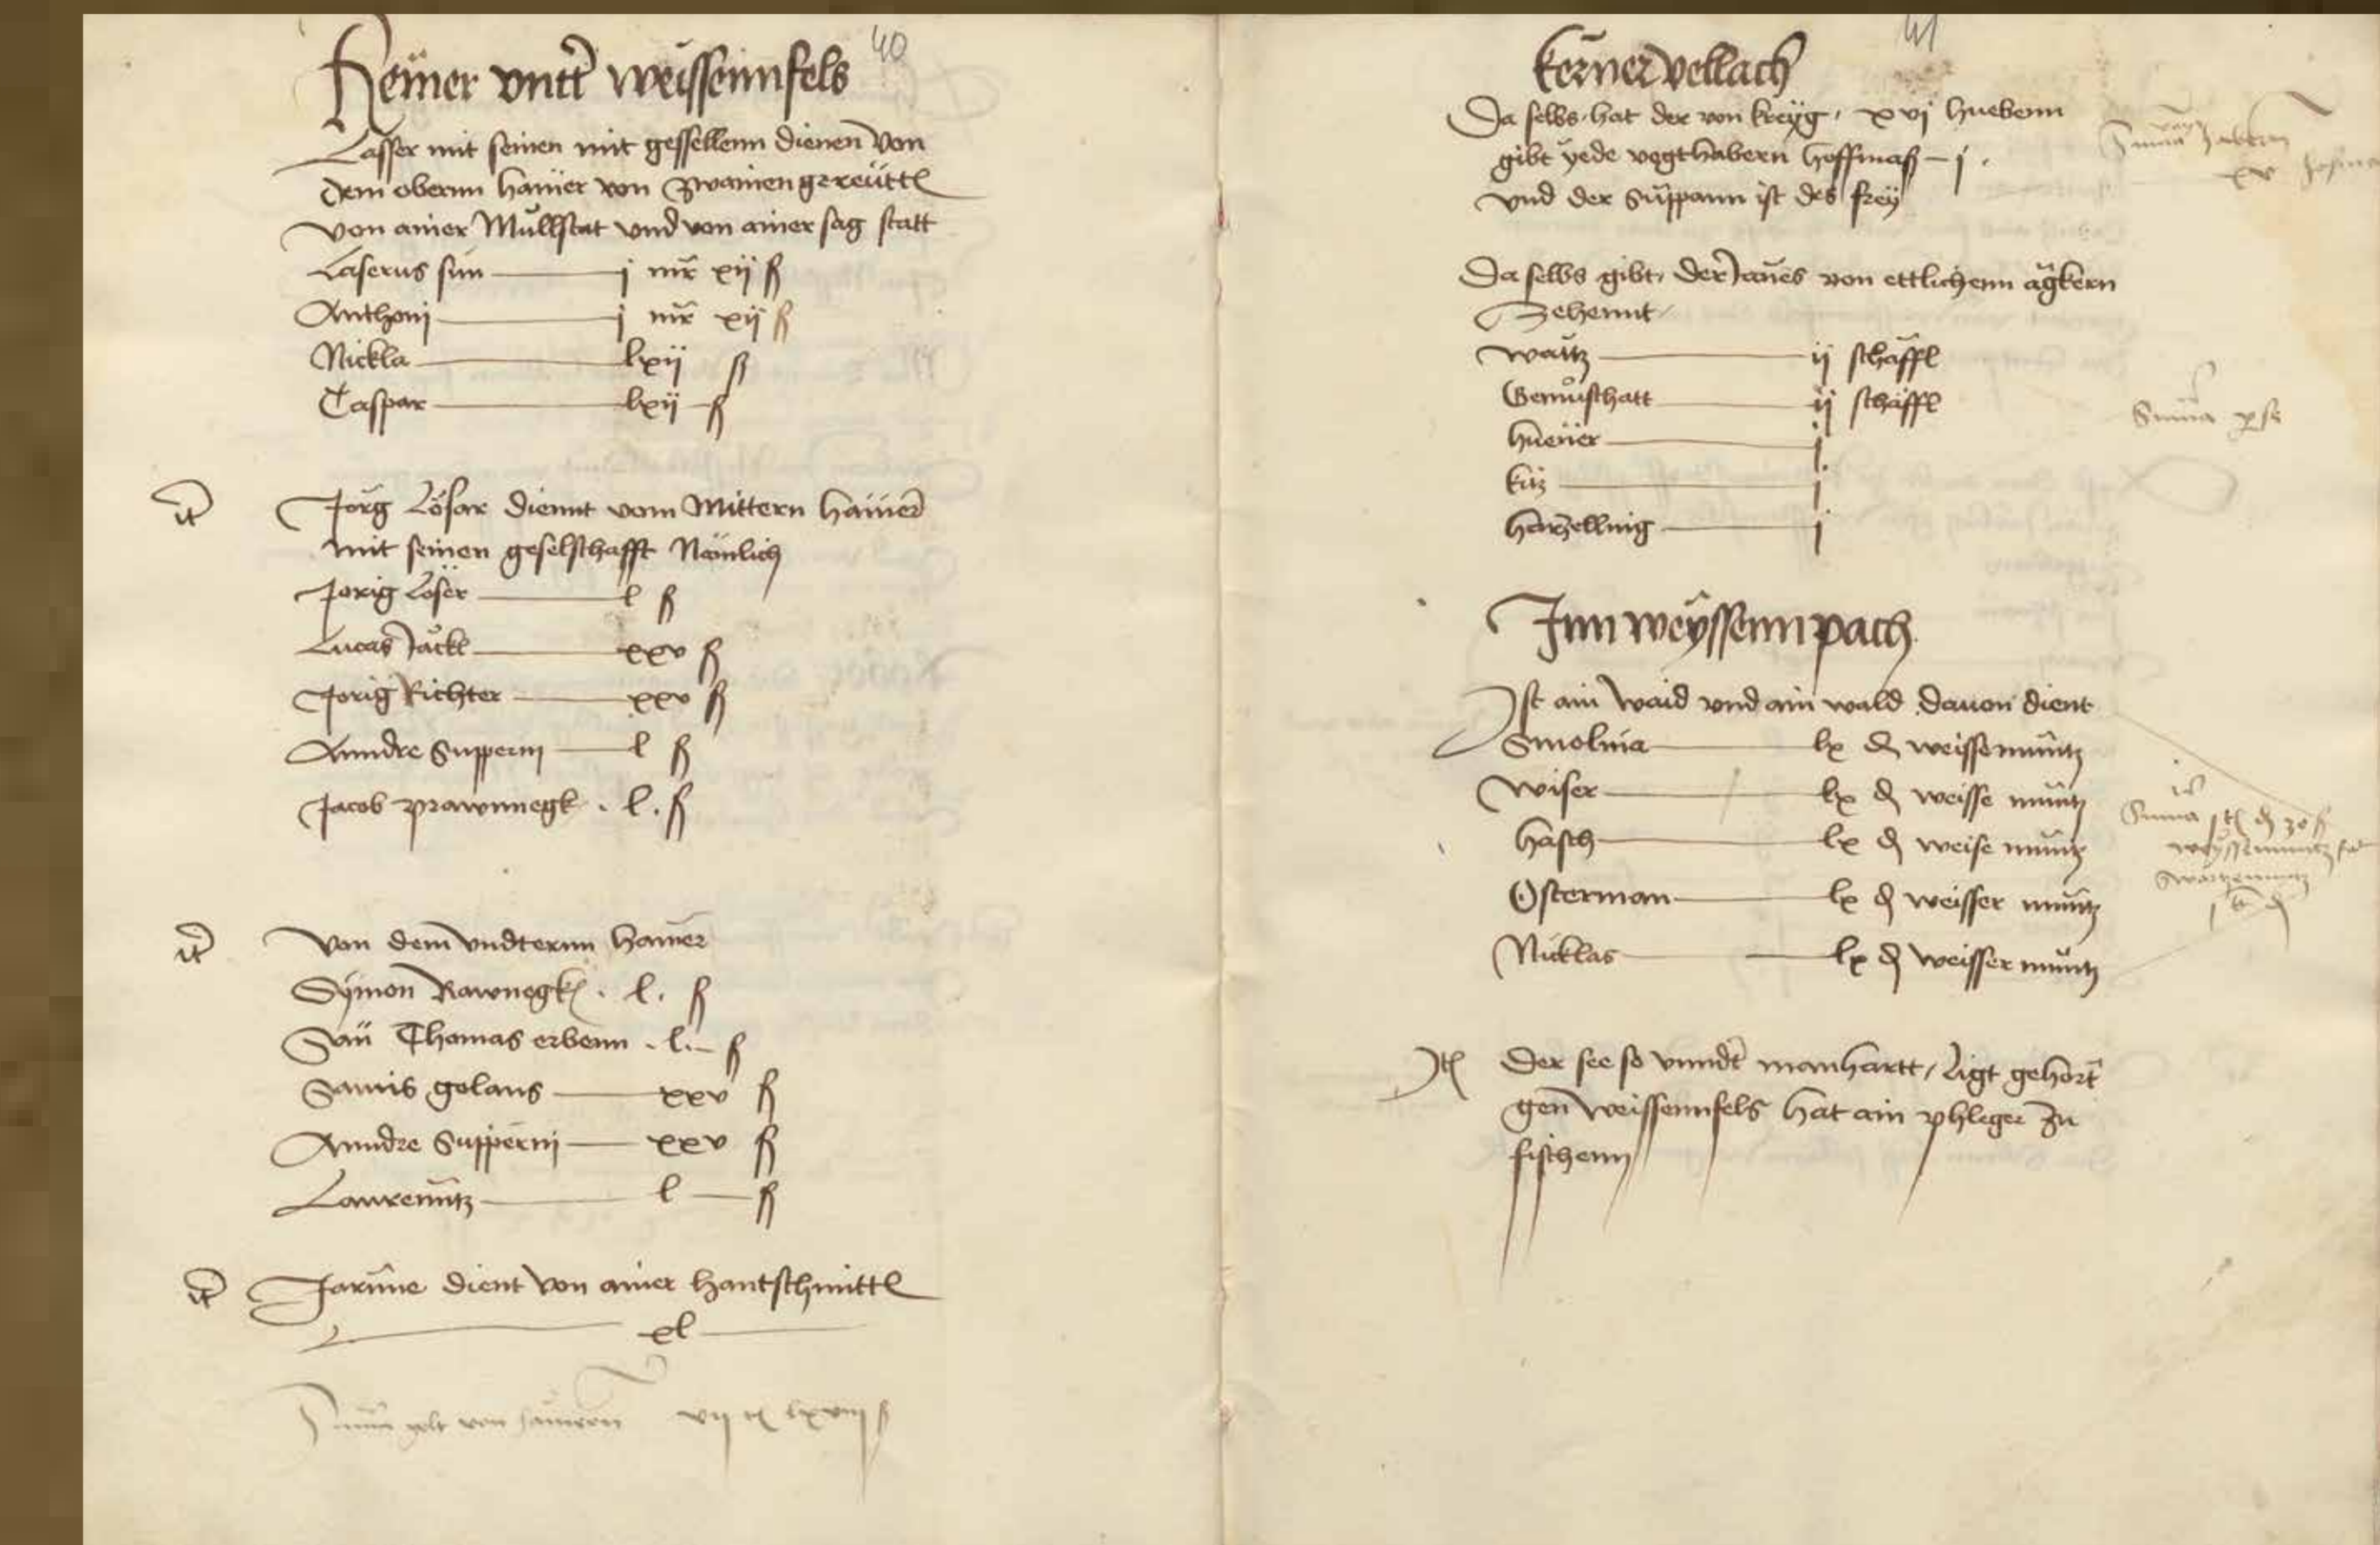 40
Hemer vntter weissennfels
Lasser mit seinen mit gessellenn dienen von
dem obernn hamer von zwainen gereütt
von ainer Mullstat vnd von ainer sag statt
Laserus sun — j mr xij ß
Anthonj — j mr xij ß
Nickla — lxij ß
Caspar — lxij ß
it Jorg Lösar diennt vom Mittern hamer
mit seinen geselschafft Nemlich
Jorig Löser — l ß
Lucas Jäckl — xxv ß
Jorig Richter — xxv ß
Anndre Supperin — l ß
Jacob prawnnegk . l . ß
it Von dem vndternn hamer
Symon Rawnegk . l . ß
San Thomas erbenn . l . — ß
golans — xxv ß
Anndre Supperin — xxv ß
Laurenntz — l — ß
it Jarüne dient von ainer hantschmitt
xl
Summa gelt von hamern vij lxviij ß
41
kerner vellach
Da selbs hat der von kreyg . xvj huebenn
gibt yede vogthabern hoffmaß — j .
vnd der Suppann ist des frey
Summa habern
xv
Da selbs gibt der Janes von ettlichenn ägkern
Zehennt
waitz — ij schäffl
Gemuschatt — ij schäffl
huener — j
kitz — j
harzelling — j
Summa per se
Inn weyssenn pach
Ist ain waid vnd ain wald dauon dient
Smolnia — lx d weisse muntz
wiser — lx d weisse muntz
hasch — lx d weise muntz
Osterman — lx d weisser muntz
Nicklas — lx d weisser muntz
Summa
weyssemuntz
Swartzemuntz
Itl Der see so vnndter manhartt / ligt gehort
gen weissennfels hat ain phleger zu
fischenn